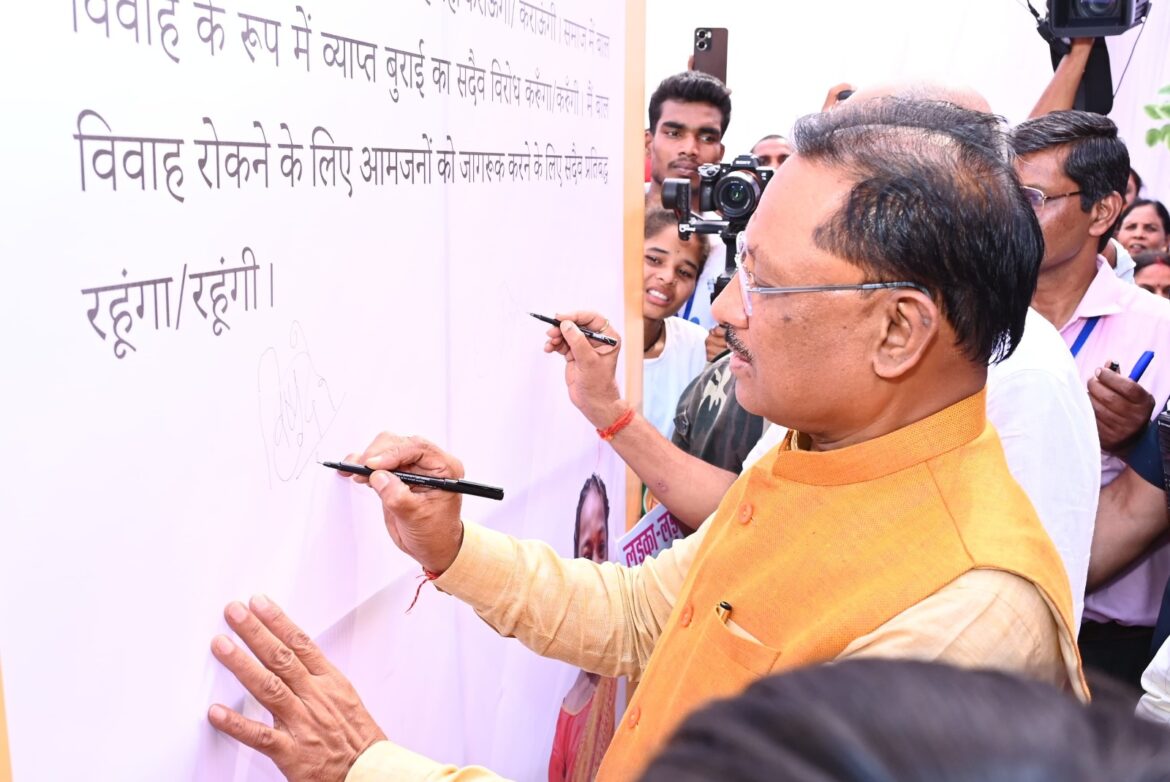 कराऊंगा/ कराऊंगी। समाज में बाल
विवाह के रूप में व्याप्त बुराई का सदैव विरोध करूँगा/करूँगी। मैं बाल
विवाह रोकने के लिए आमजनों को जागरूक करने के लिए सदैव प्रतिबद्ध
रहूंगा/रहूंगी।
लड़का-लड़